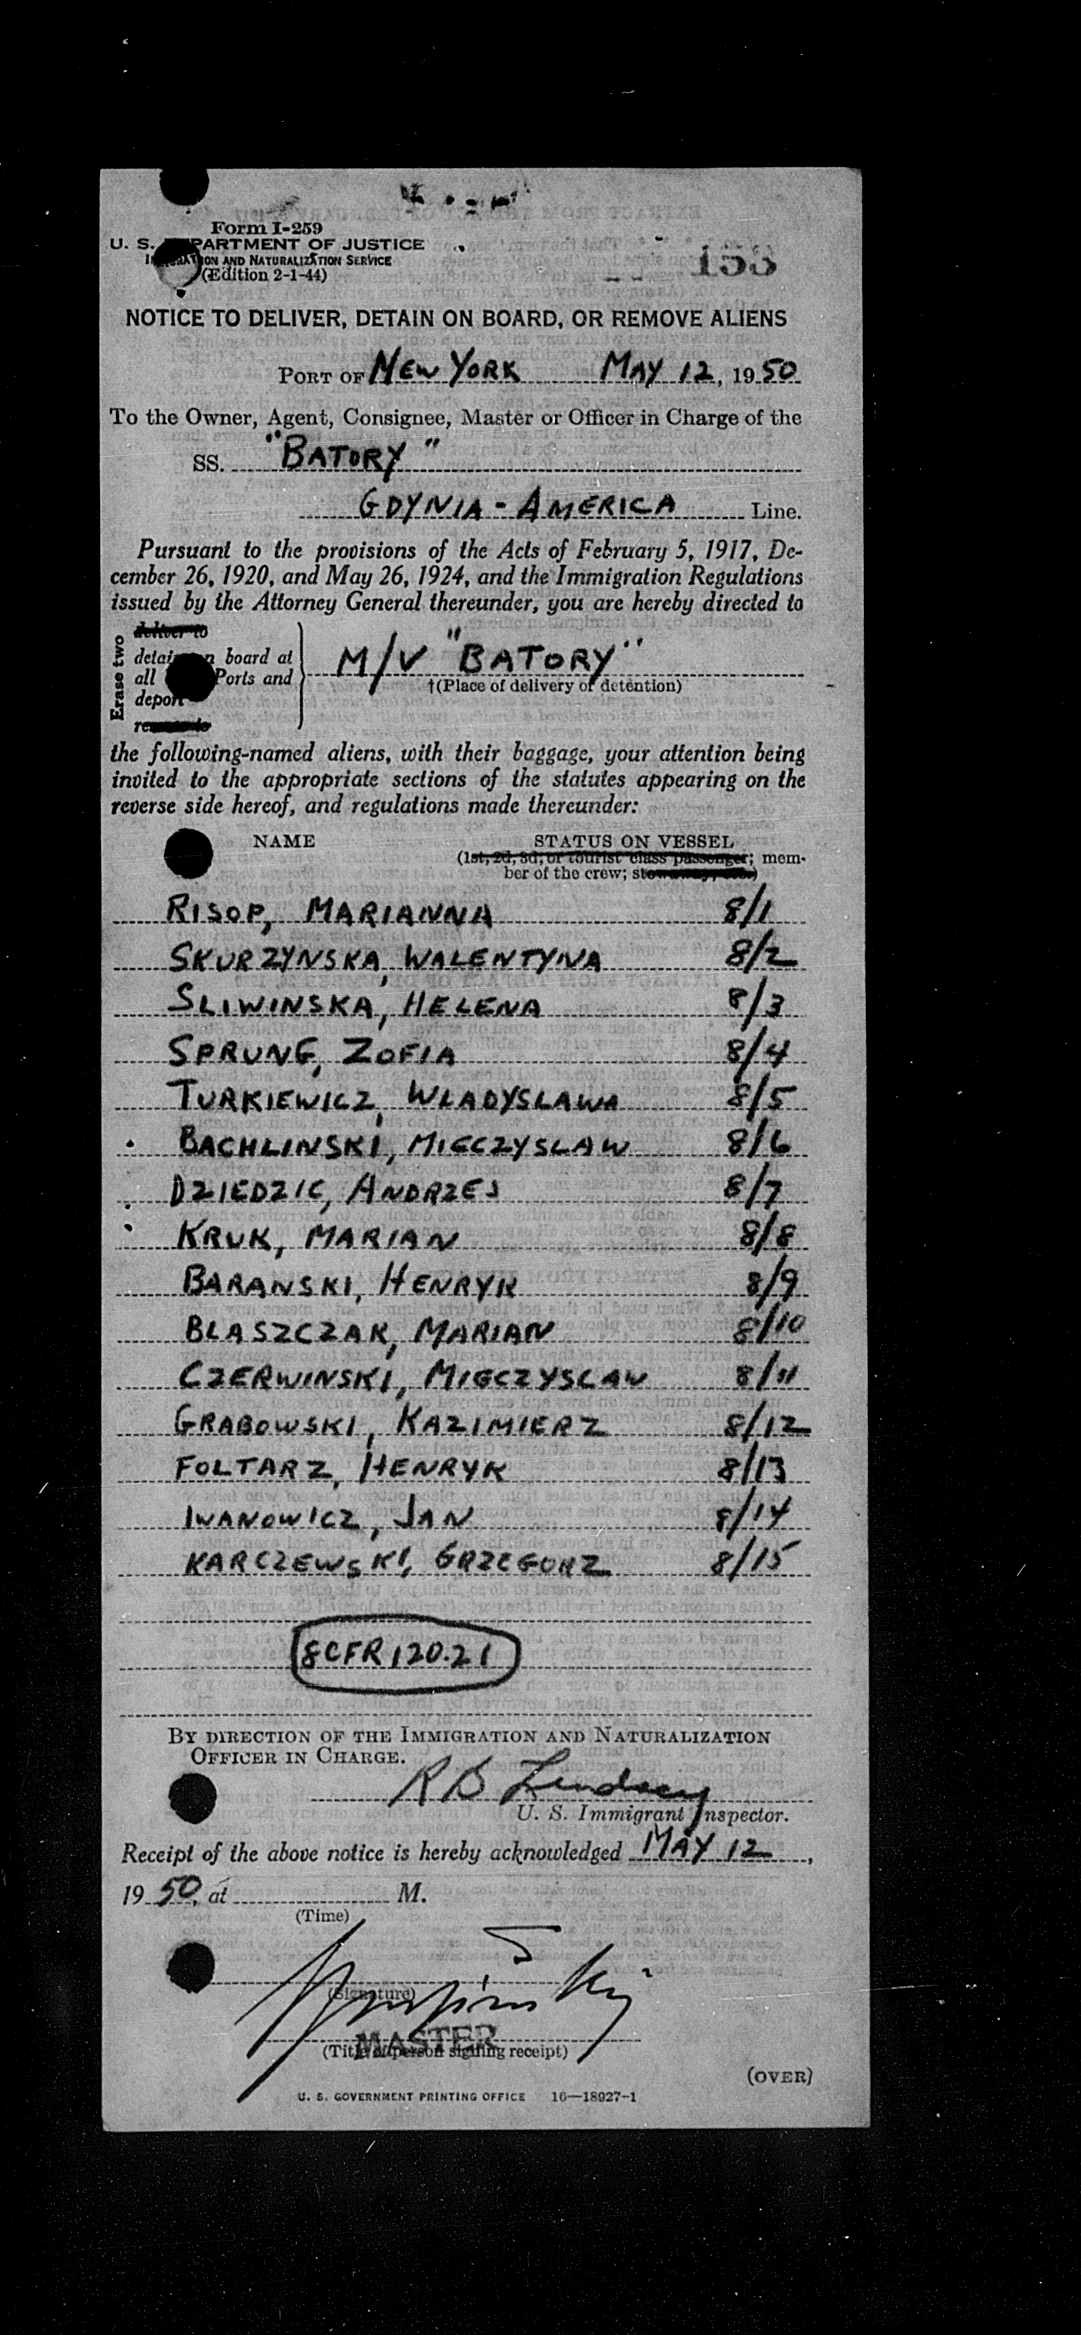 Form I-259
U. S. DEPARTMENT OF JUSTICE
IMMIGRATION AND NATURALIZATION SERVICE
(Edition 2-1-44)
153
NOTICE TO DELIVER, DETAIN ON BOARD, OR REMOVE ALIENS
PORT OF NEW YORK MAY 12, 1950
To the Owner, Agent, Consignee, Master or Officer in Charge of the
SS. "BATORY"
GDYNIA - AMERICA Line.
Pursuant to the provisions of the Acts of February 5, 1917, De-
cember 26, 1920, and May 26, 1924, and the Immigration Regulations
issued by the Attorney General thereunder, you are hereby directed to
Erase two
deliver to
detain on board at
all Ports and
deport
M/V "BATORY"
†(Place of delivery or detention)
the following-named aliens, with their baggage, your attention being
invited to the appropriate sections of the statutes appearing on the
reverse side hereof, and regulations made thereunder:
NAME STATUS ON VESSEL
(1st, 2d, 3d, or tourist class passenger; mem-
ber of the crew; stowaway, etc.)
RISOP, MARIANNA 8/1
SKURZYNSKA, WALENTYNA 8/2
SLIWINSKA, HELENA 8/3
SPRUNG, ZOFIA 8/4
TURKIEWICZ, WLADYSLAWA 8/5
BACHLINSKI, MIECZYSLAW 8/6
DZIEDZIC, ANDRZEJ 8/7
KRUK, MARIAN 8/8
BARANSKI, HENRYK 8/9
BLASZCZAK, MARIAN 8/10
CZERWINSKI, MIECZYSLAW 8/11
GRABOWSKI, KAZIMIERZ 8/12
FOLTARZ, HENRYK 8/13
IWANOWICZ, JAN 8/14
KARCZEWSKI, GRZEGORZ 8/15
8CFR 120.21
BY DIRECTION OF THE IMMIGRATION AND NATURALIZATION
OFFICER IN CHARGE.
R B Lindsey
U. S. Immigrant Inspector.
Receipt of the above notice is hereby acknowledged MAY 12,
1950, at M.
(Time)
(Signature)
MASTER
(Title of person signing receipt)
(OVER)
U. S. GOVERNMENT PRINTING OFFICE 16—18927-1